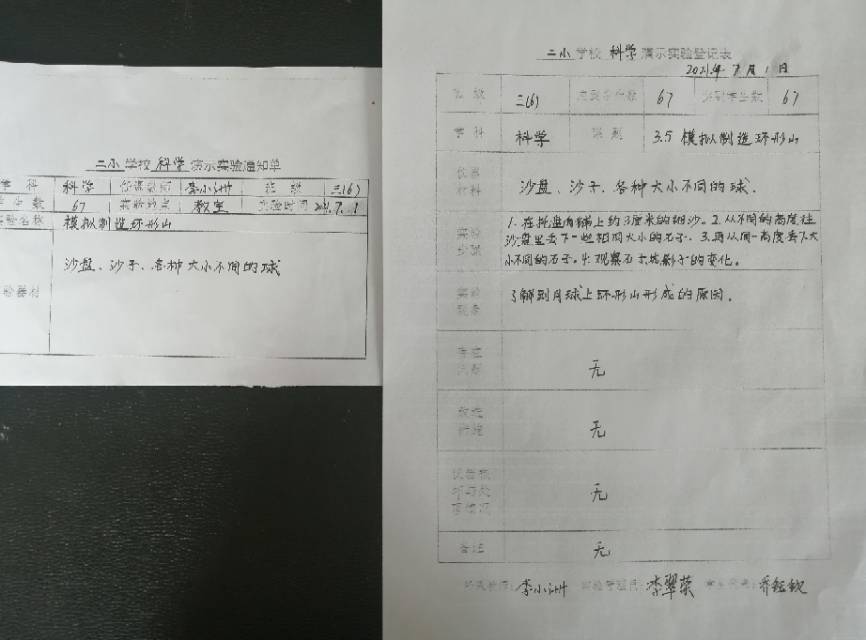 二小学校 科学 演示实验通知单
学 科 科学 任课教师 李小洲 班 级 三(6)
学生数 67 实验地点 教室 实验时间 2021.7.1
实验名称 模拟制造环形山
实验器材 沙盘、沙子、各种大小不同的球
二小学校 科学 演示实验登记表
2021年7月1日
班 级 三(6) 应到学生数 67 实到学生数 67
学 科 科学 课 题 3.5 模拟制造环形山
仪器材料 沙盘、沙子、各种大小不同的球.
实验步骤 1.在托盘内铺上约3厘米的细沙。2.从不同的高度往
沙盘里丢下一些相同大小的石子. 3.再从同一高度丢下大
小不同的石子。4.观察石子的变化。
实验现象 了解到月球上环形山形成的原因.
存在问题 无
改进措施 无
仪器 无
备注 无
任课教师:李小洲 实验管理员:李翠荣 学生代表:乔